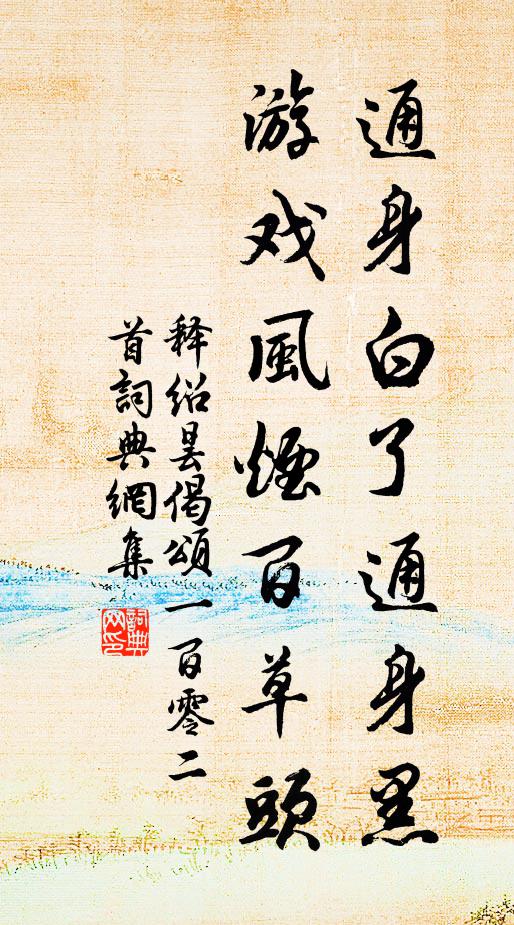 通身白了通身黑
游戏風煙百草頭
释绍昙偈頌一百零二
首詞典網集
詞典
网印